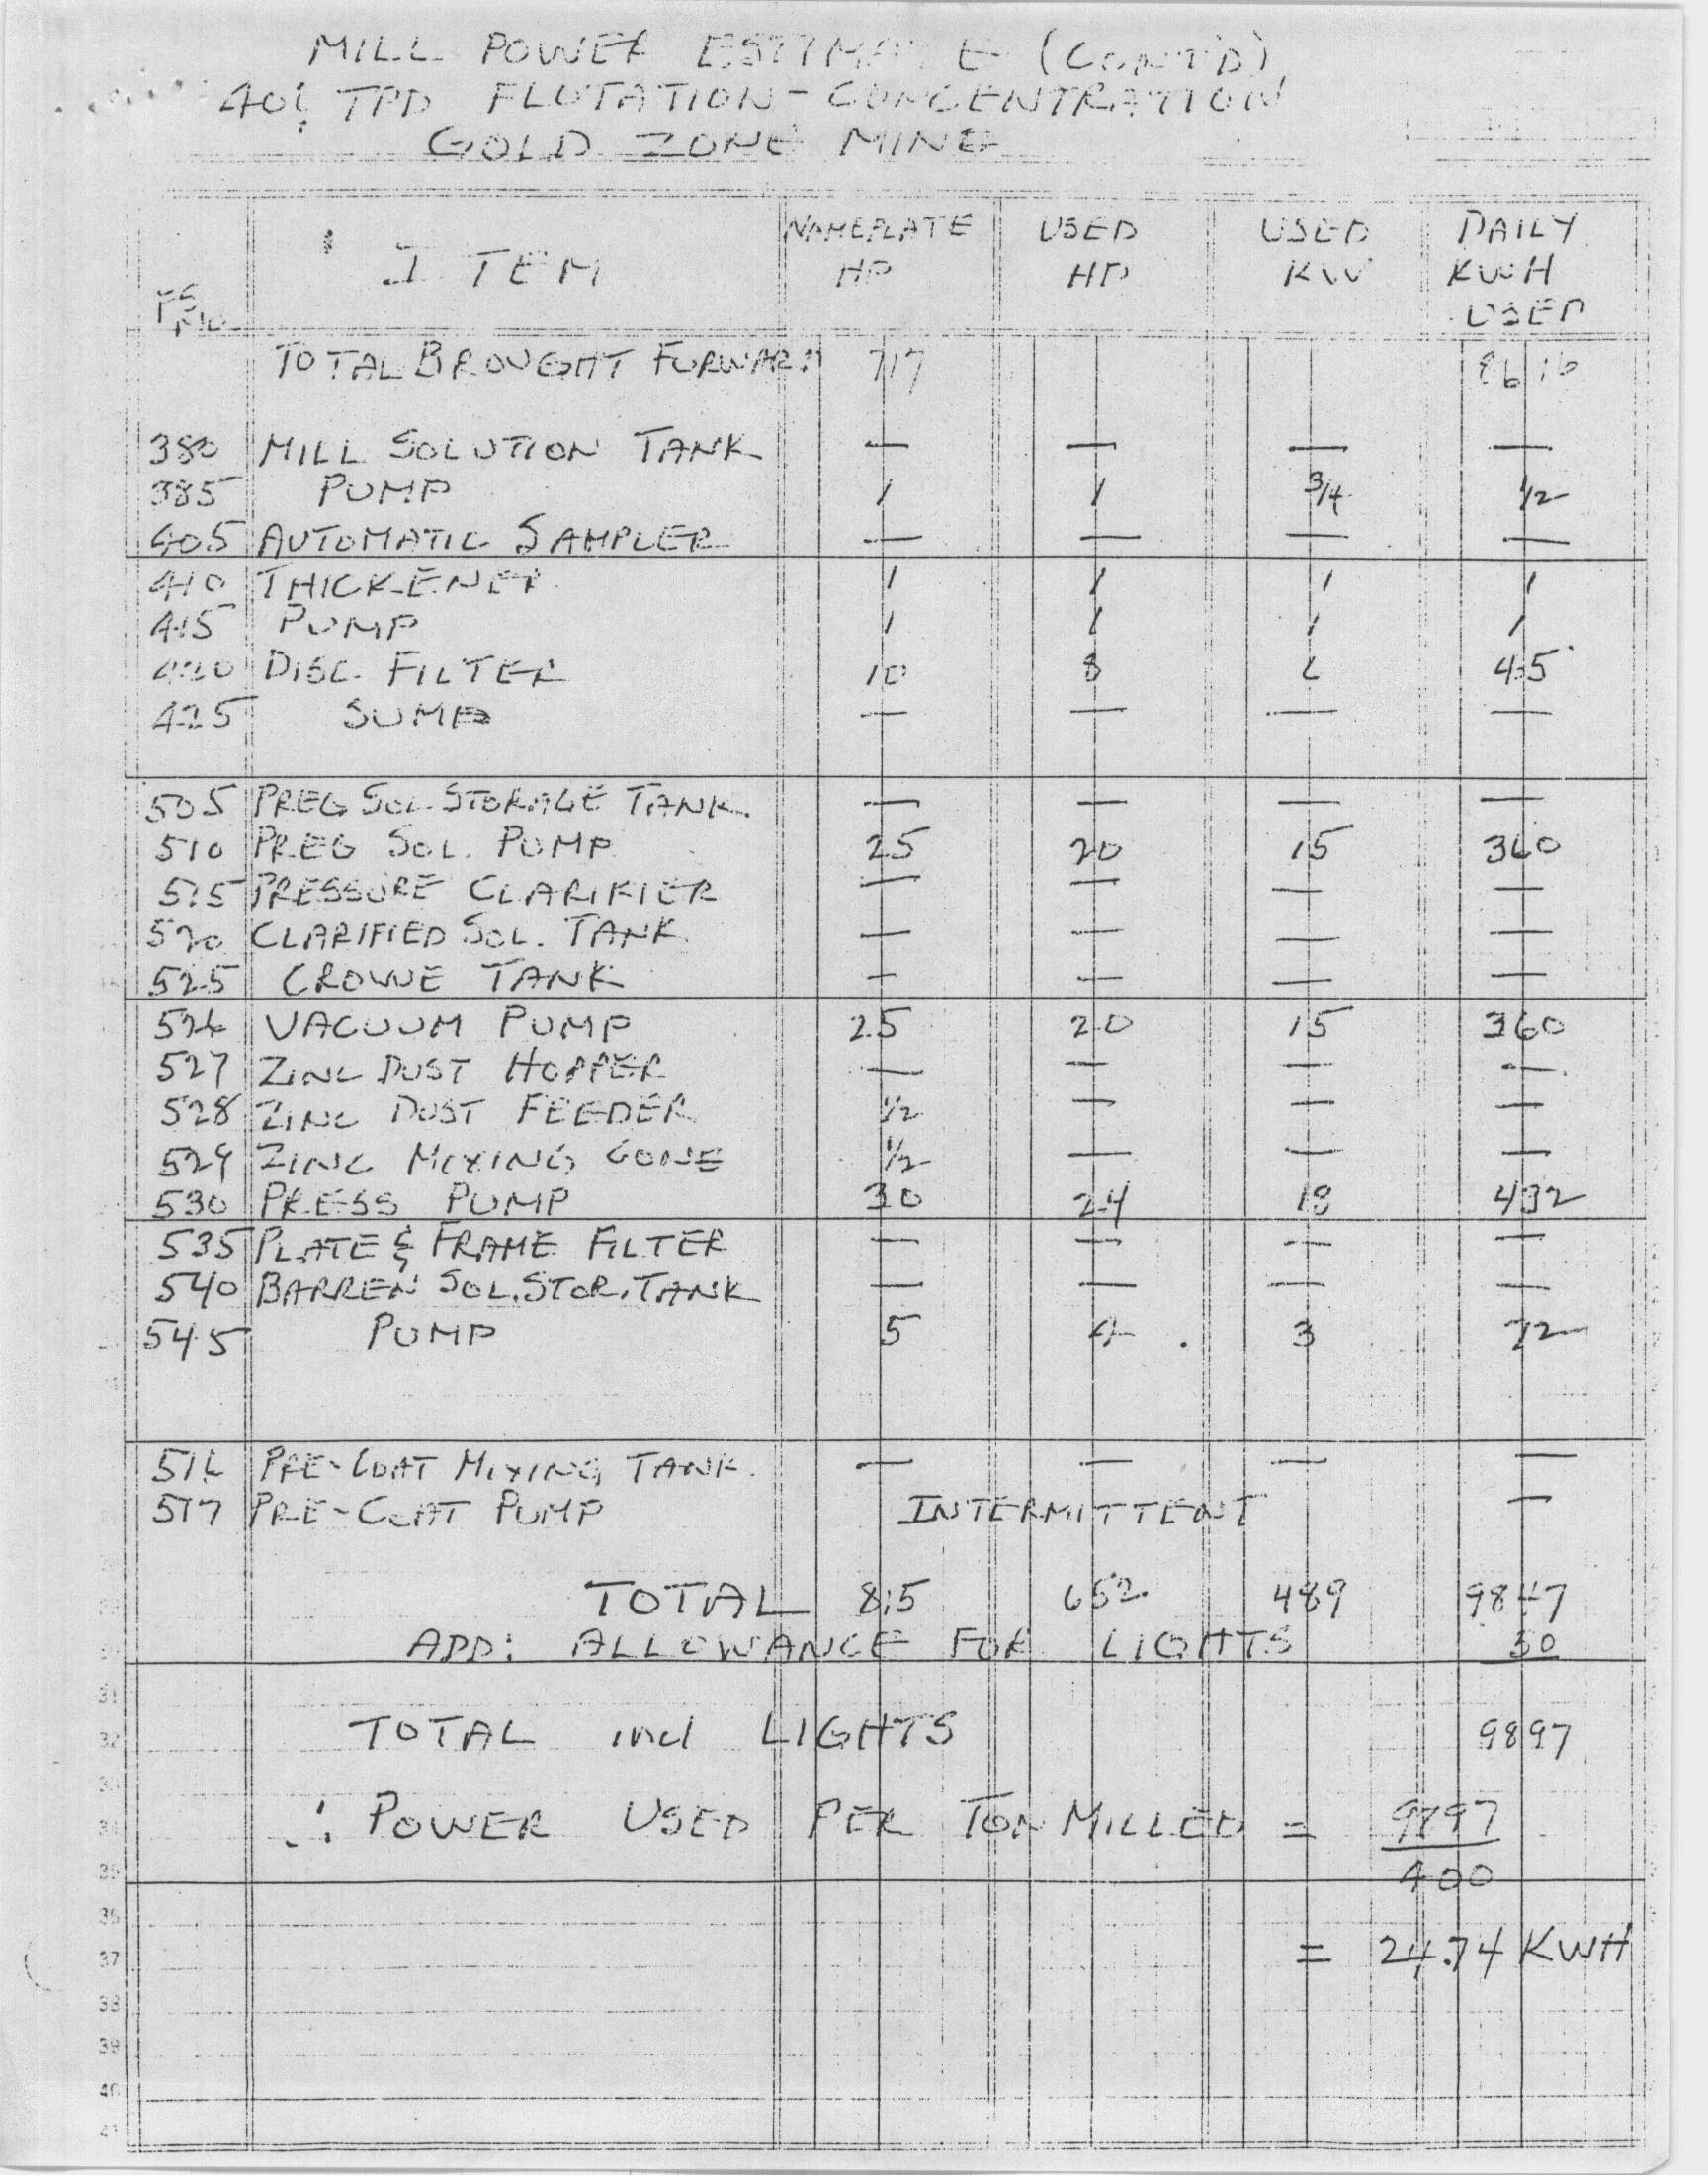 MILL POWER ESTIMATE (CONT'D)
TPD FLOTATION - CONCENTRATION
GOLD ZONE MINE
FS No. ITEM NAMEPLATE HP USED HP USED KW DAILY KWH USED
TOTAL BROUGHT FORWARD 717 8616
380 MILL SOLUTION TANK — — — —
385 PUMP 1 1 3/4 1/2
405 AUTOMATIC SAMPLER — — — —
410 THICKENER 1 1 1 1
415 PUMP 1 1 1 1
420 DISC FILTER 10 8 6 45
425 SUMP — — — —
505 PREG SOL. STORAGE TANK. — — — —
510 PREG SOL. PUMP 25 20 15 360
515 PRESSURE CLARIFIER — — — —
520 CLARIFIED SOL. TANK — — — —
525 CROWE TANK — — — —
526 VACUUM PUMP 25 20 15 360
527 ZINC DUST HOPPER — — — —
528 ZINC DUST FEEDER 1/2 — — —
529 ZINC MIXING CONE 1/2 — — —
530 PRESS PUMP 30 24 18 432
535 PLATE & FRAME FILTER — — — —
540 BARREN SOL. STOR. TANK — — — —
545 PUMP 5 4 3 72
516 PRE-COAT MIXING TANK. — — — —
517 PRE-COAT PUMP INTERMITTENT —
TOTAL 815 652 489 9847
ADD: ALLOWANCE FOR LIGHTS 50
31
32 TOTAL incl LIGHTS 9897
33
34 ∴ POWER USED PER TON MILLED = 9897
35 400
36
37 = 24.74 KWH
38
39
40
41